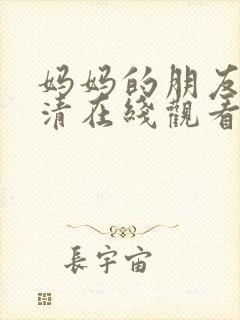 妈妈的朋友
清在綫觀看
長宇宙